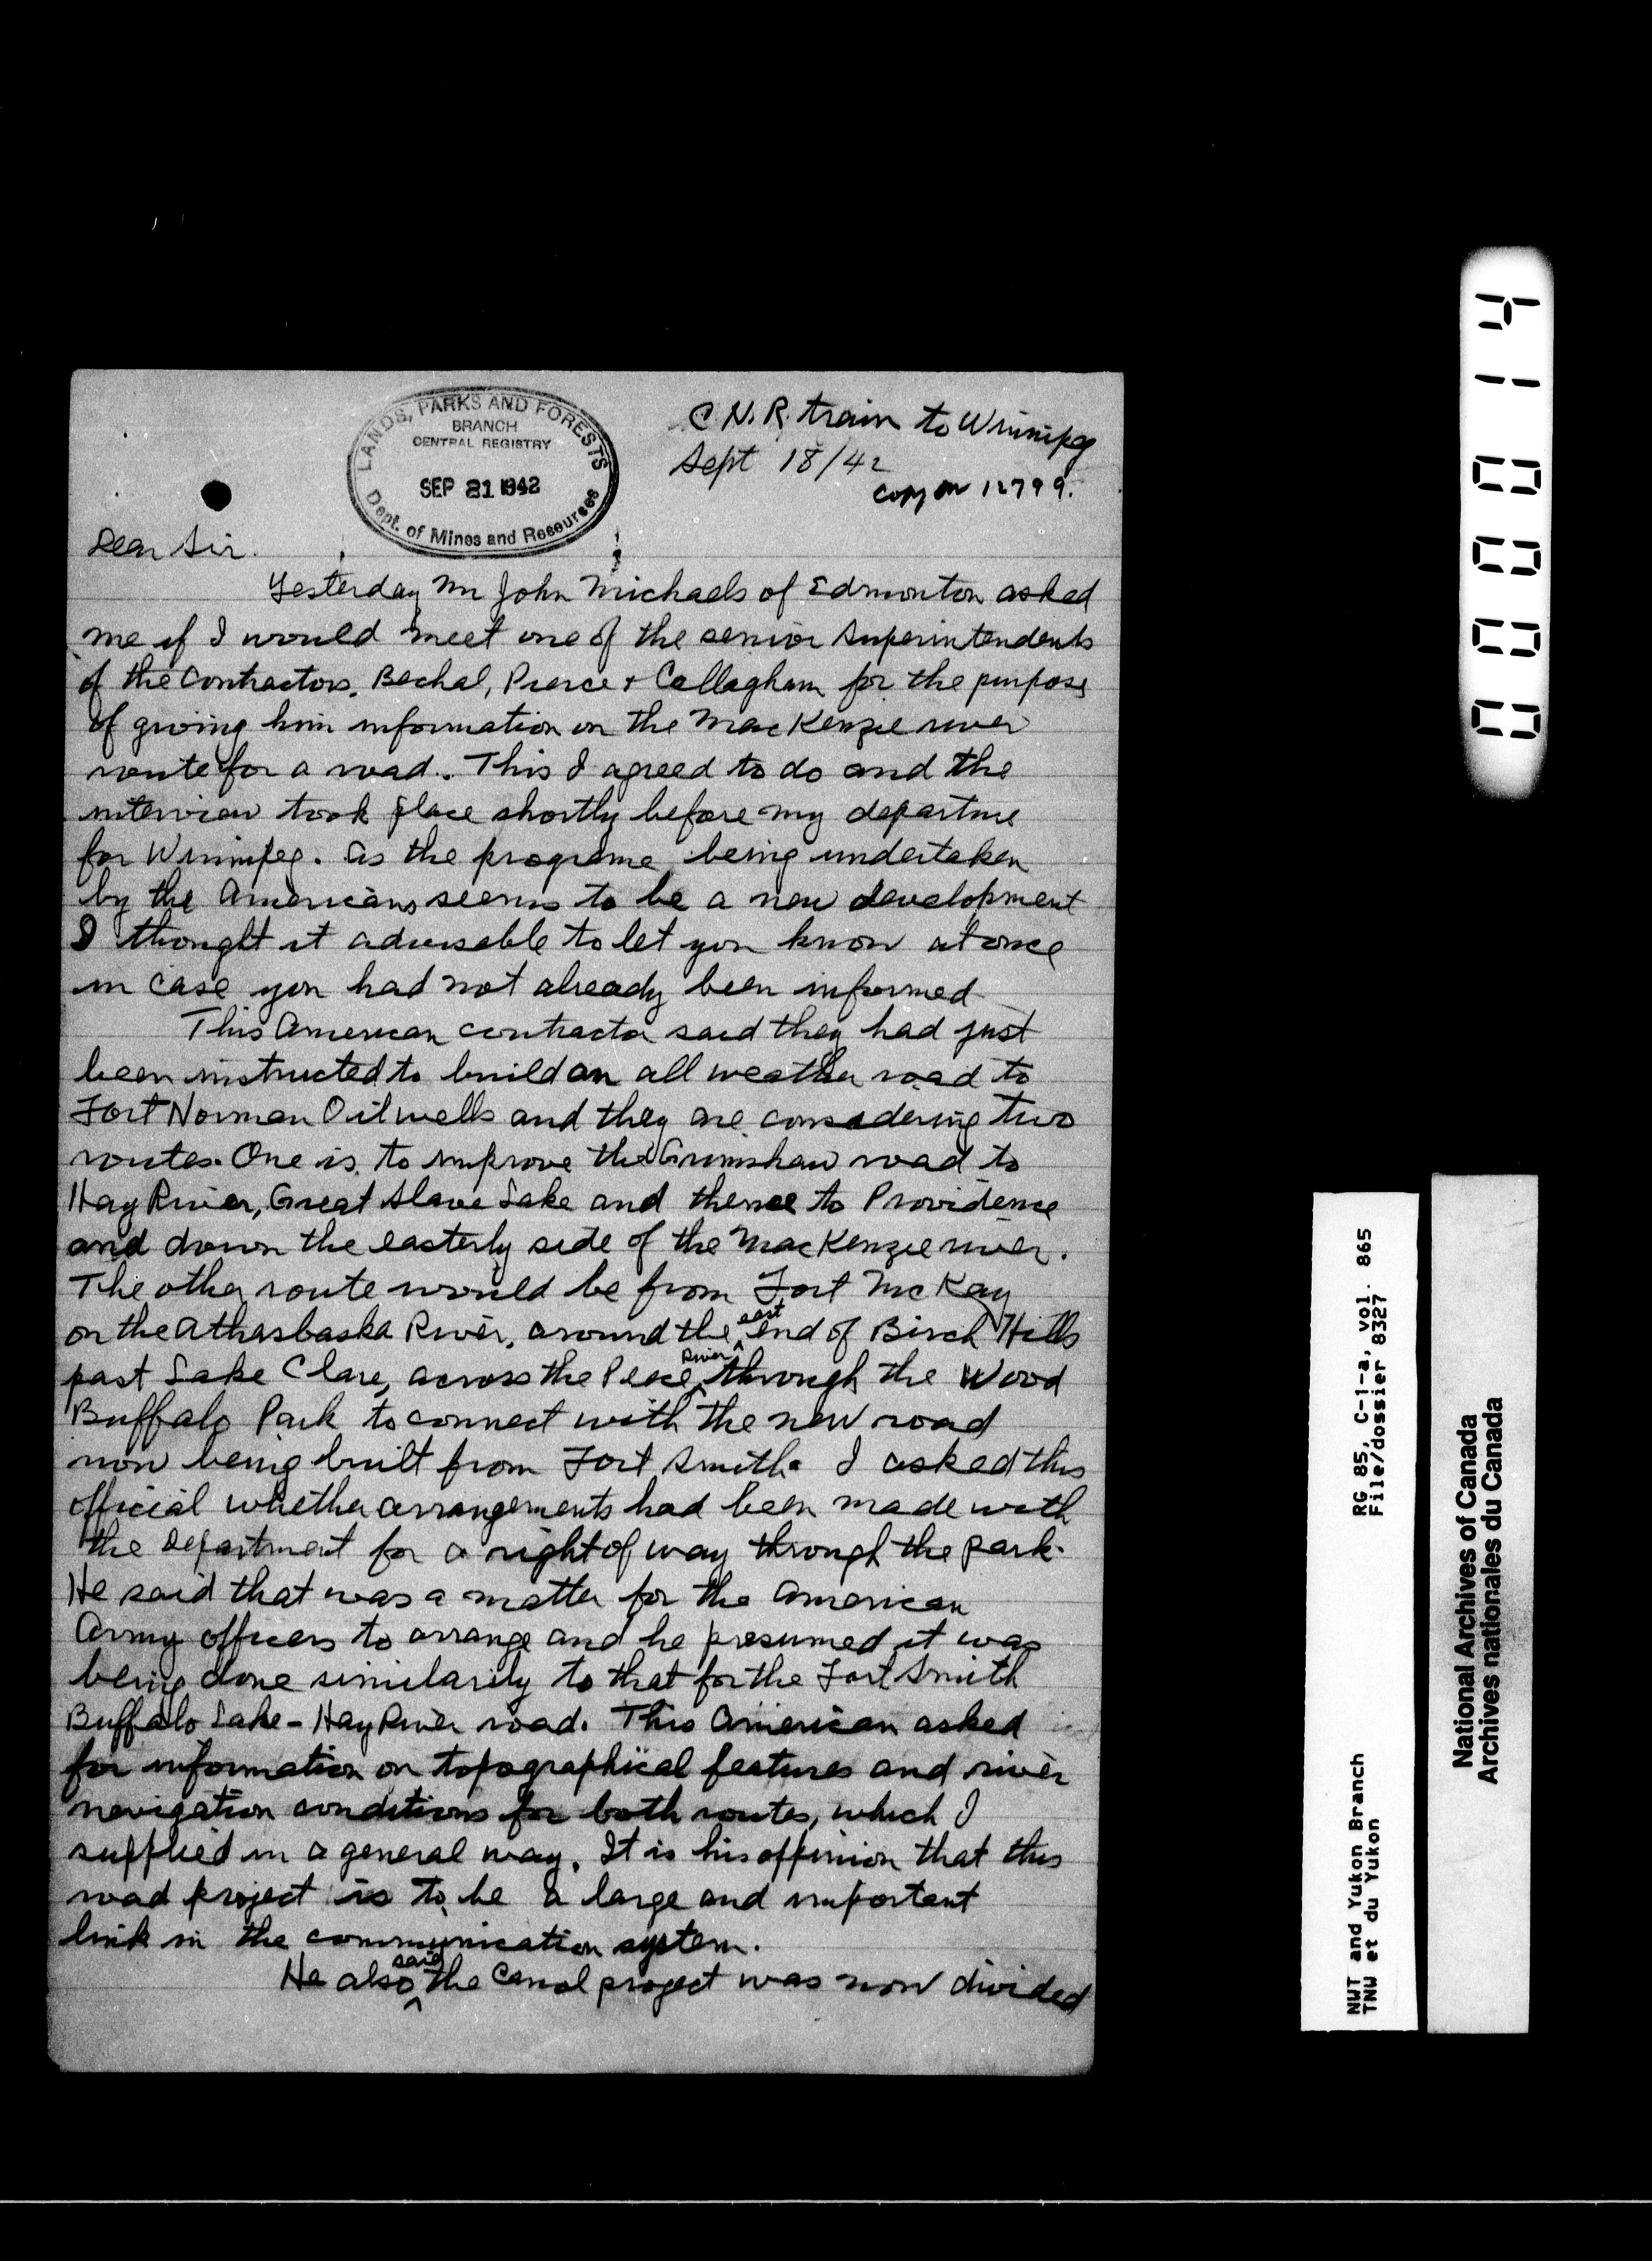 LANDS, PARKS AND FORESTS
BRANCH
CENTRAL REGISTRY
SEP 21 1942
Dept. of Mines and Resources
C.N.R. train to Winnipeg
Sept 18/42
Copy on 12799.
Dear Sir.
Yesterday Mr John Michaels of Edmonton asked
me if I would meet one of the senior superintendents
of the Contractors. Bechal, Pierce + Callagham for the purpose
of giving him information on the MacKenzie river
route for a road. This I agreed to do and the
interview took place shortly before my departure
for Winnipeg. As the programe being undertaken
by the Americans seems to be a new development
I thought it adviseable to let you know at once
in case you had not already been informed
This American contractor said they had just
been instructed to build an all weather road to
Fort Norman Oil wells and they are considering two
routes. One is to improve the Grimshaw road to
Hay River, Great Slave Lake and thence to Providence
and down the easterly side of the MacKenzie river.
The other route would be from Fort McKay
on the Athasbaska River, around the east end of Birch Hills
past Lake Clare, across the Peace River through the Wood
Buffalo Park to connect with the new road
now being built from Fort Smith. I asked this
official whether arrangements had been made with
the Department for a right of way through the park.
He said that was a matter for the American
Army officers to arrange and he presumed it was
being done similarily to that for the Fort Smith
Buffalo Lake - Hay River road. This American asked
for information on topographical features and river
navigation conditions for both routes, which I
supplied in a general way. It is his oppinion that this
road project is to be a large and important
link in the communication system.
He also said the Canol project was now divided
0000114
RG 85, C-1-a, vol. 865
File/dossier 8327
NWT and Yukon Branch
TNW et du Yukon
National Archives of Canada
Archives nationales du Canada